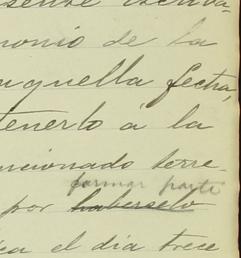 sente escriba-
monio de la
aquella fecha,
tenerlo á la
ncionado terre-
formar parte
por haberselo
ca el dia trece